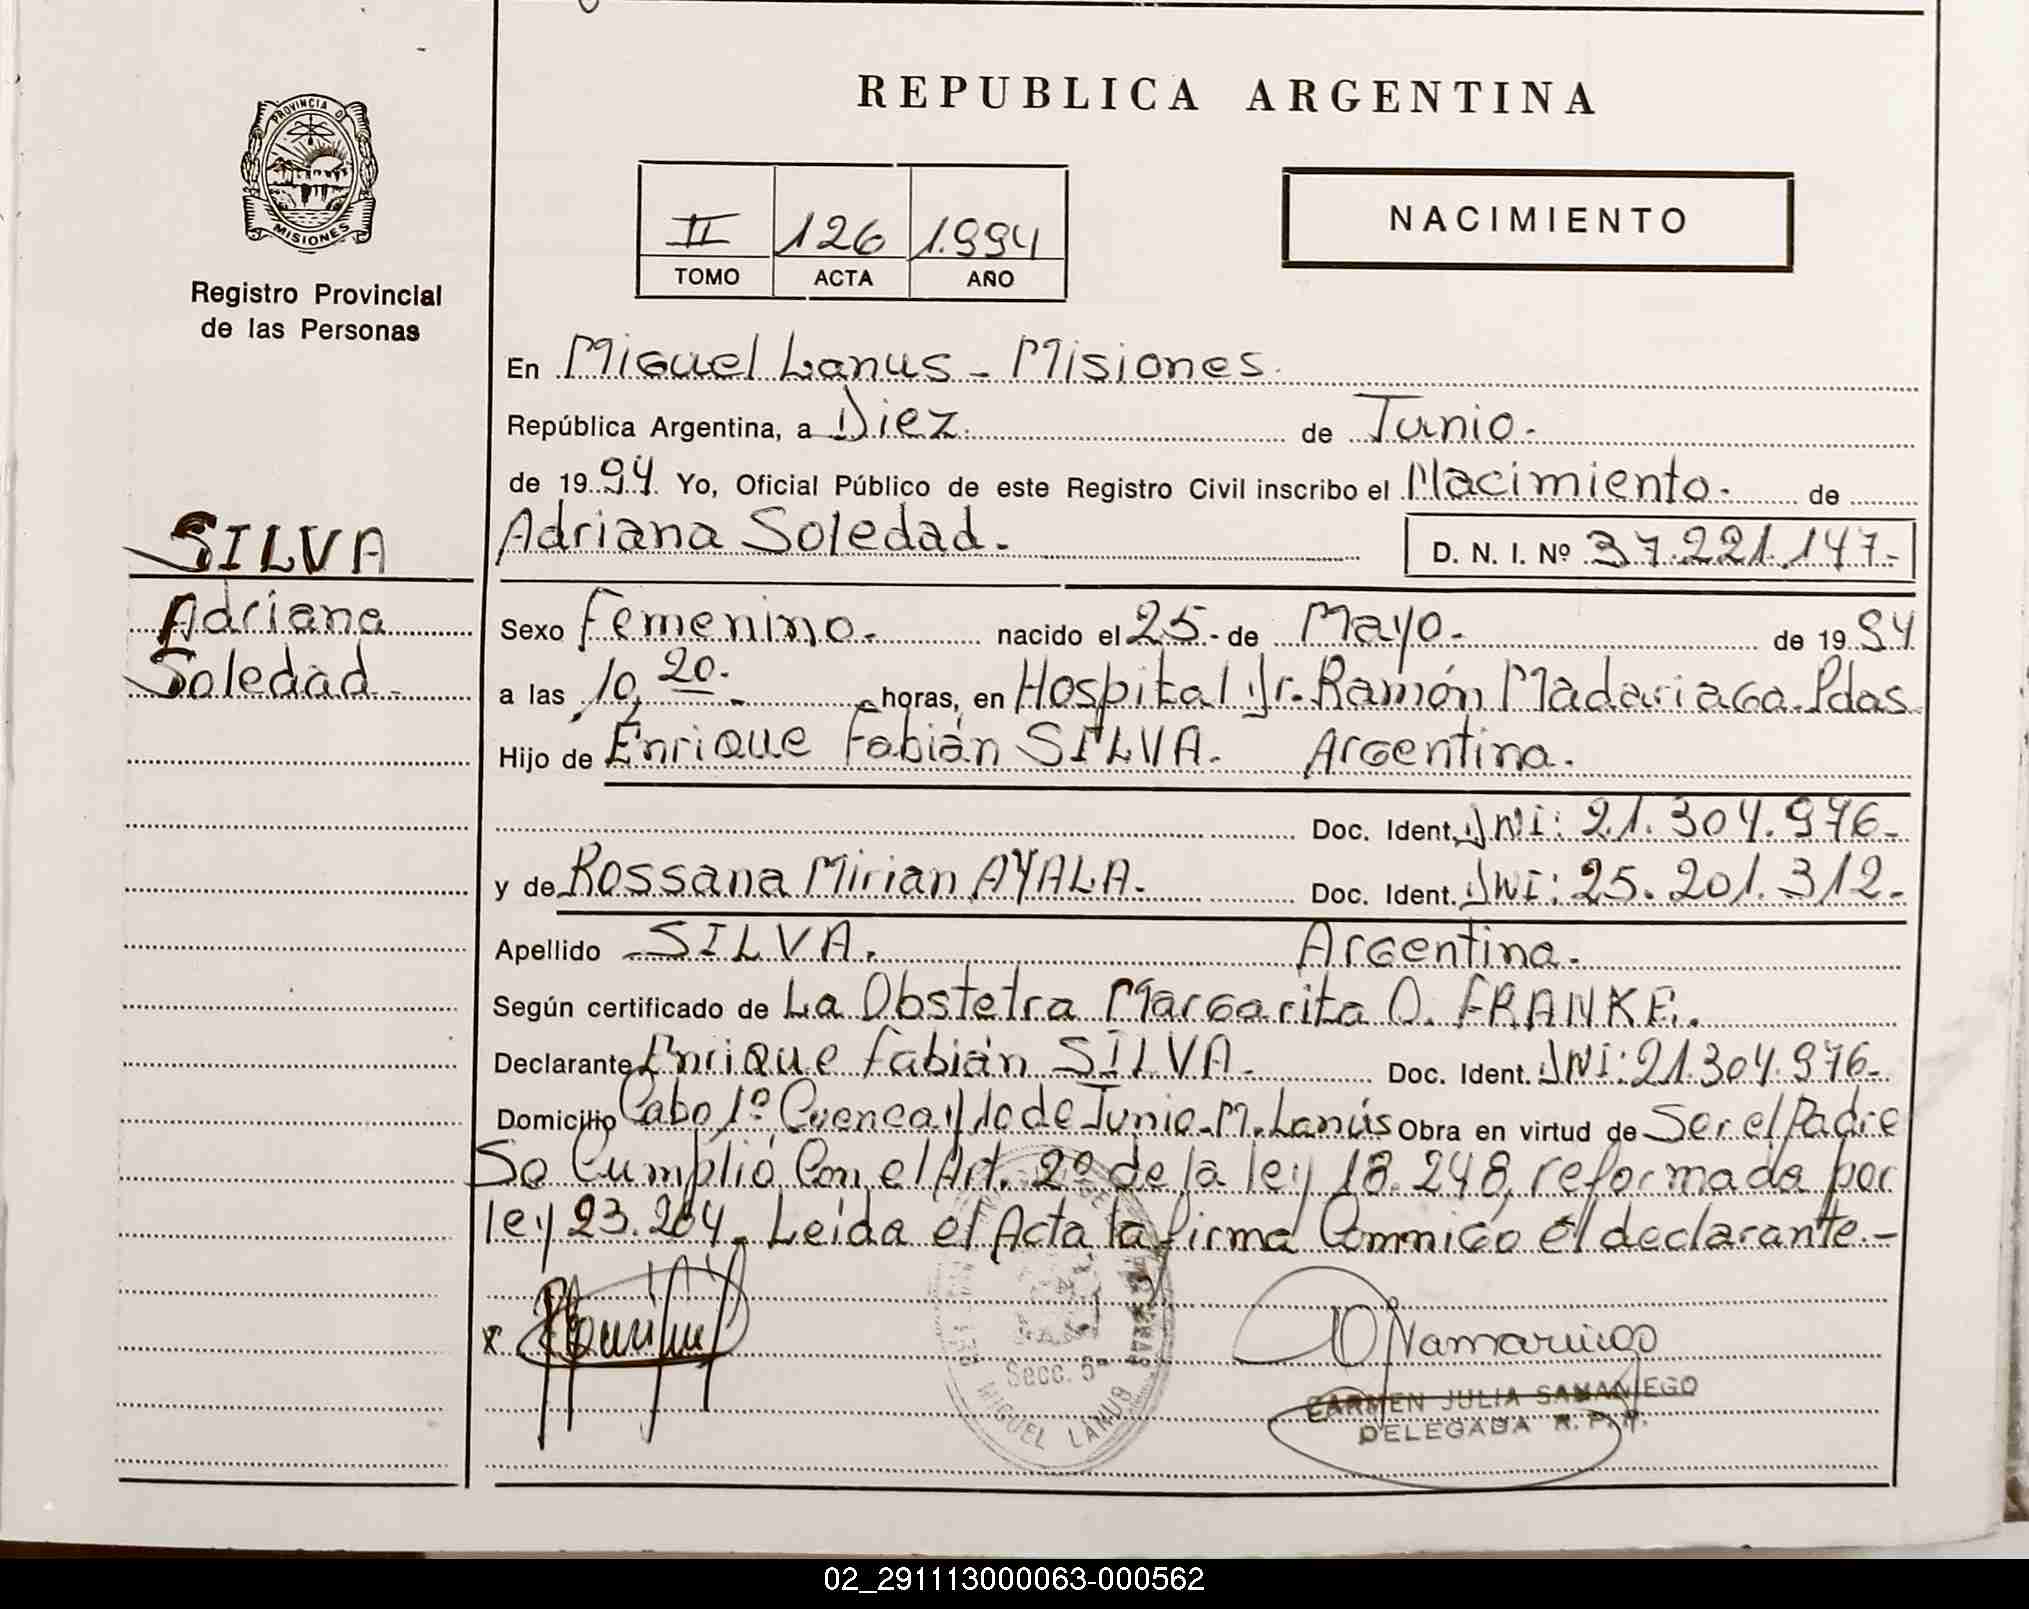 REPUBLICA ARGENTINA
PROVINCIA D
MISIONES
Registro Provincial
de las Personas
II 126 1.994
TOMO ACTA AÑO
NACIMIENTO
En Miguel Lanus - Misiones.
República Argentina, a Diez. de Junio.
de 1994 Yo, Oficial Público de este Registro Civil inscribo el Nacimiento. de
Adriana Soledad. D. N. I. Nº 37.221.147.-
SILVA
Adriana
Soledad.-
Sexo Femenino. nacido el 25.- de Mayo.- de 1994
a las 10,20.- horas, en Hospital Dr. Ramón Madariaga. Pdas.
Hijo de Enrique Fabián SILVA. Argentina.
Doc. Ident. DNI: 21.304.976.-
y de Rossana Mirian AYALA. Doc. Ident. DNI: 25.201.312.-
Apellido SILVA. Argentina.
Según certificado de La Obstetra Margarita O. FRANKE.
Declarante Enrique Fabián SILVA. Doc. Ident. DNI: 21.304.976.-
Domicilio Cabo 1º Cuenca y 10 de Junio. M. Lanús Obra en virtud de Ser el Padre
Se Cumplió Con el Art. 2º de la ley 18.248, reformada por
ley 23.264. Leída el Acta la firma Conmigo el declarante.-
x
Secc. 5ª
MIGUEL LANUS
CARMEN JULIA SAMANIEGO
DELEGADA R. P. P.
02_291113000063-000562